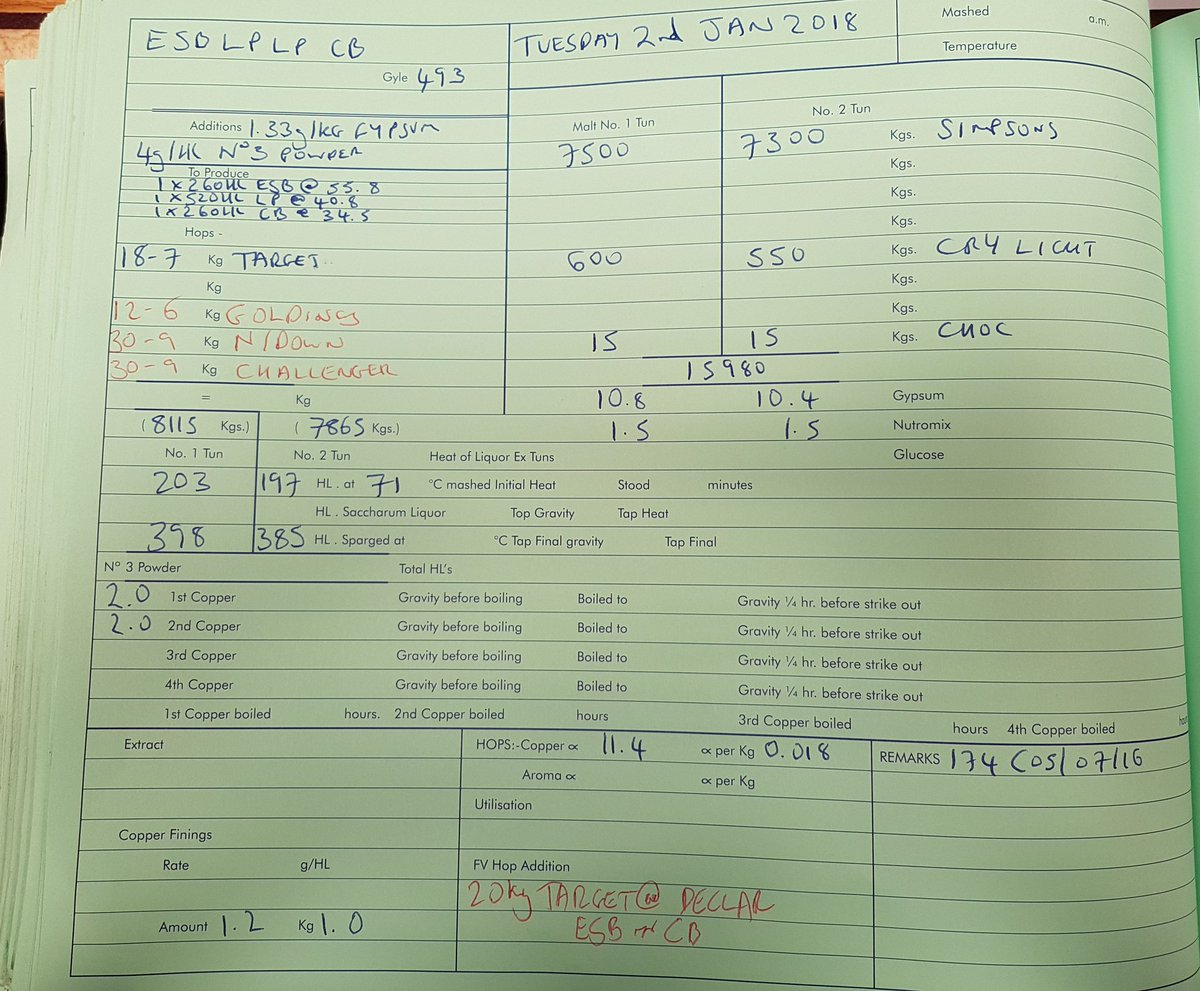 ESB LP LP CB
TUESDAY 2nd JAN 2018
Mashed a.m.
Gyle 493
Temperature
Additions 1.33g/KG GYPSUM
Malt No. 1 Tun No. 2 Tun
4g/HL No3 POWDER
7500 7300 Kgs. SIMPSONS
To Produce
Kgs.
1 x 260HL ESB @ 55.8
Kgs.
1 x 520HL LP @ 40.8
1 x 260HL CB @ 34.5
Kgs.
Hops -
18-7 Kg TARGET
600 550 Kgs. CRY LIGHT
Kg
Kgs.
12-6 Kg GOLDINGS
Kgs.
30-9 Kg N/DOWN
15 15 Kgs. CHOC
30-9 Kg CHALLENGER
15980
= Kg
10.8 10.4 Gypsum
(8115 Kgs.) (7865 Kgs.)
1.5 1.5 Nutromix
No. 1 Tun No. 2 Tun Heat of Liquor Ex Tuns Glucose
203 197 HL. at 71 °C mashed Initial Heat Stood minutes
HL. Saccharum Liquor Top Gravity Tap Heat
398 385 HL. Sparged at °C Tap Final gravity Tap Final
N° 3 Powder Total HL's
2.0 1st Copper Gravity before boiling Boiled to Gravity ¼ hr. before strike out
2.0 2nd Copper Gravity before boiling Boiled to Gravity ¼ hr. before strike out
3rd Copper Gravity before boiling Boiled to Gravity ¼ hr. before strike out
4th Copper Gravity before boiling Boiled to Gravity ¼ hr. before strike out
1st Copper boiled hours. 2nd Copper boiled hours 3rd Copper boiled hours 4th Copper boiled hours
Extract
HOPS:-Copper ∝ 11.4 ∝ per Kg 0.018
REMARKS 174 (05/07/16
Aroma ∝ ∝ per Kg
Utilisation
Copper Finings
Rate g/HL
FV Hop Addition
20kg TARGET @ DECLAR
Amount 1.2 Kg 1.0
ESB CB